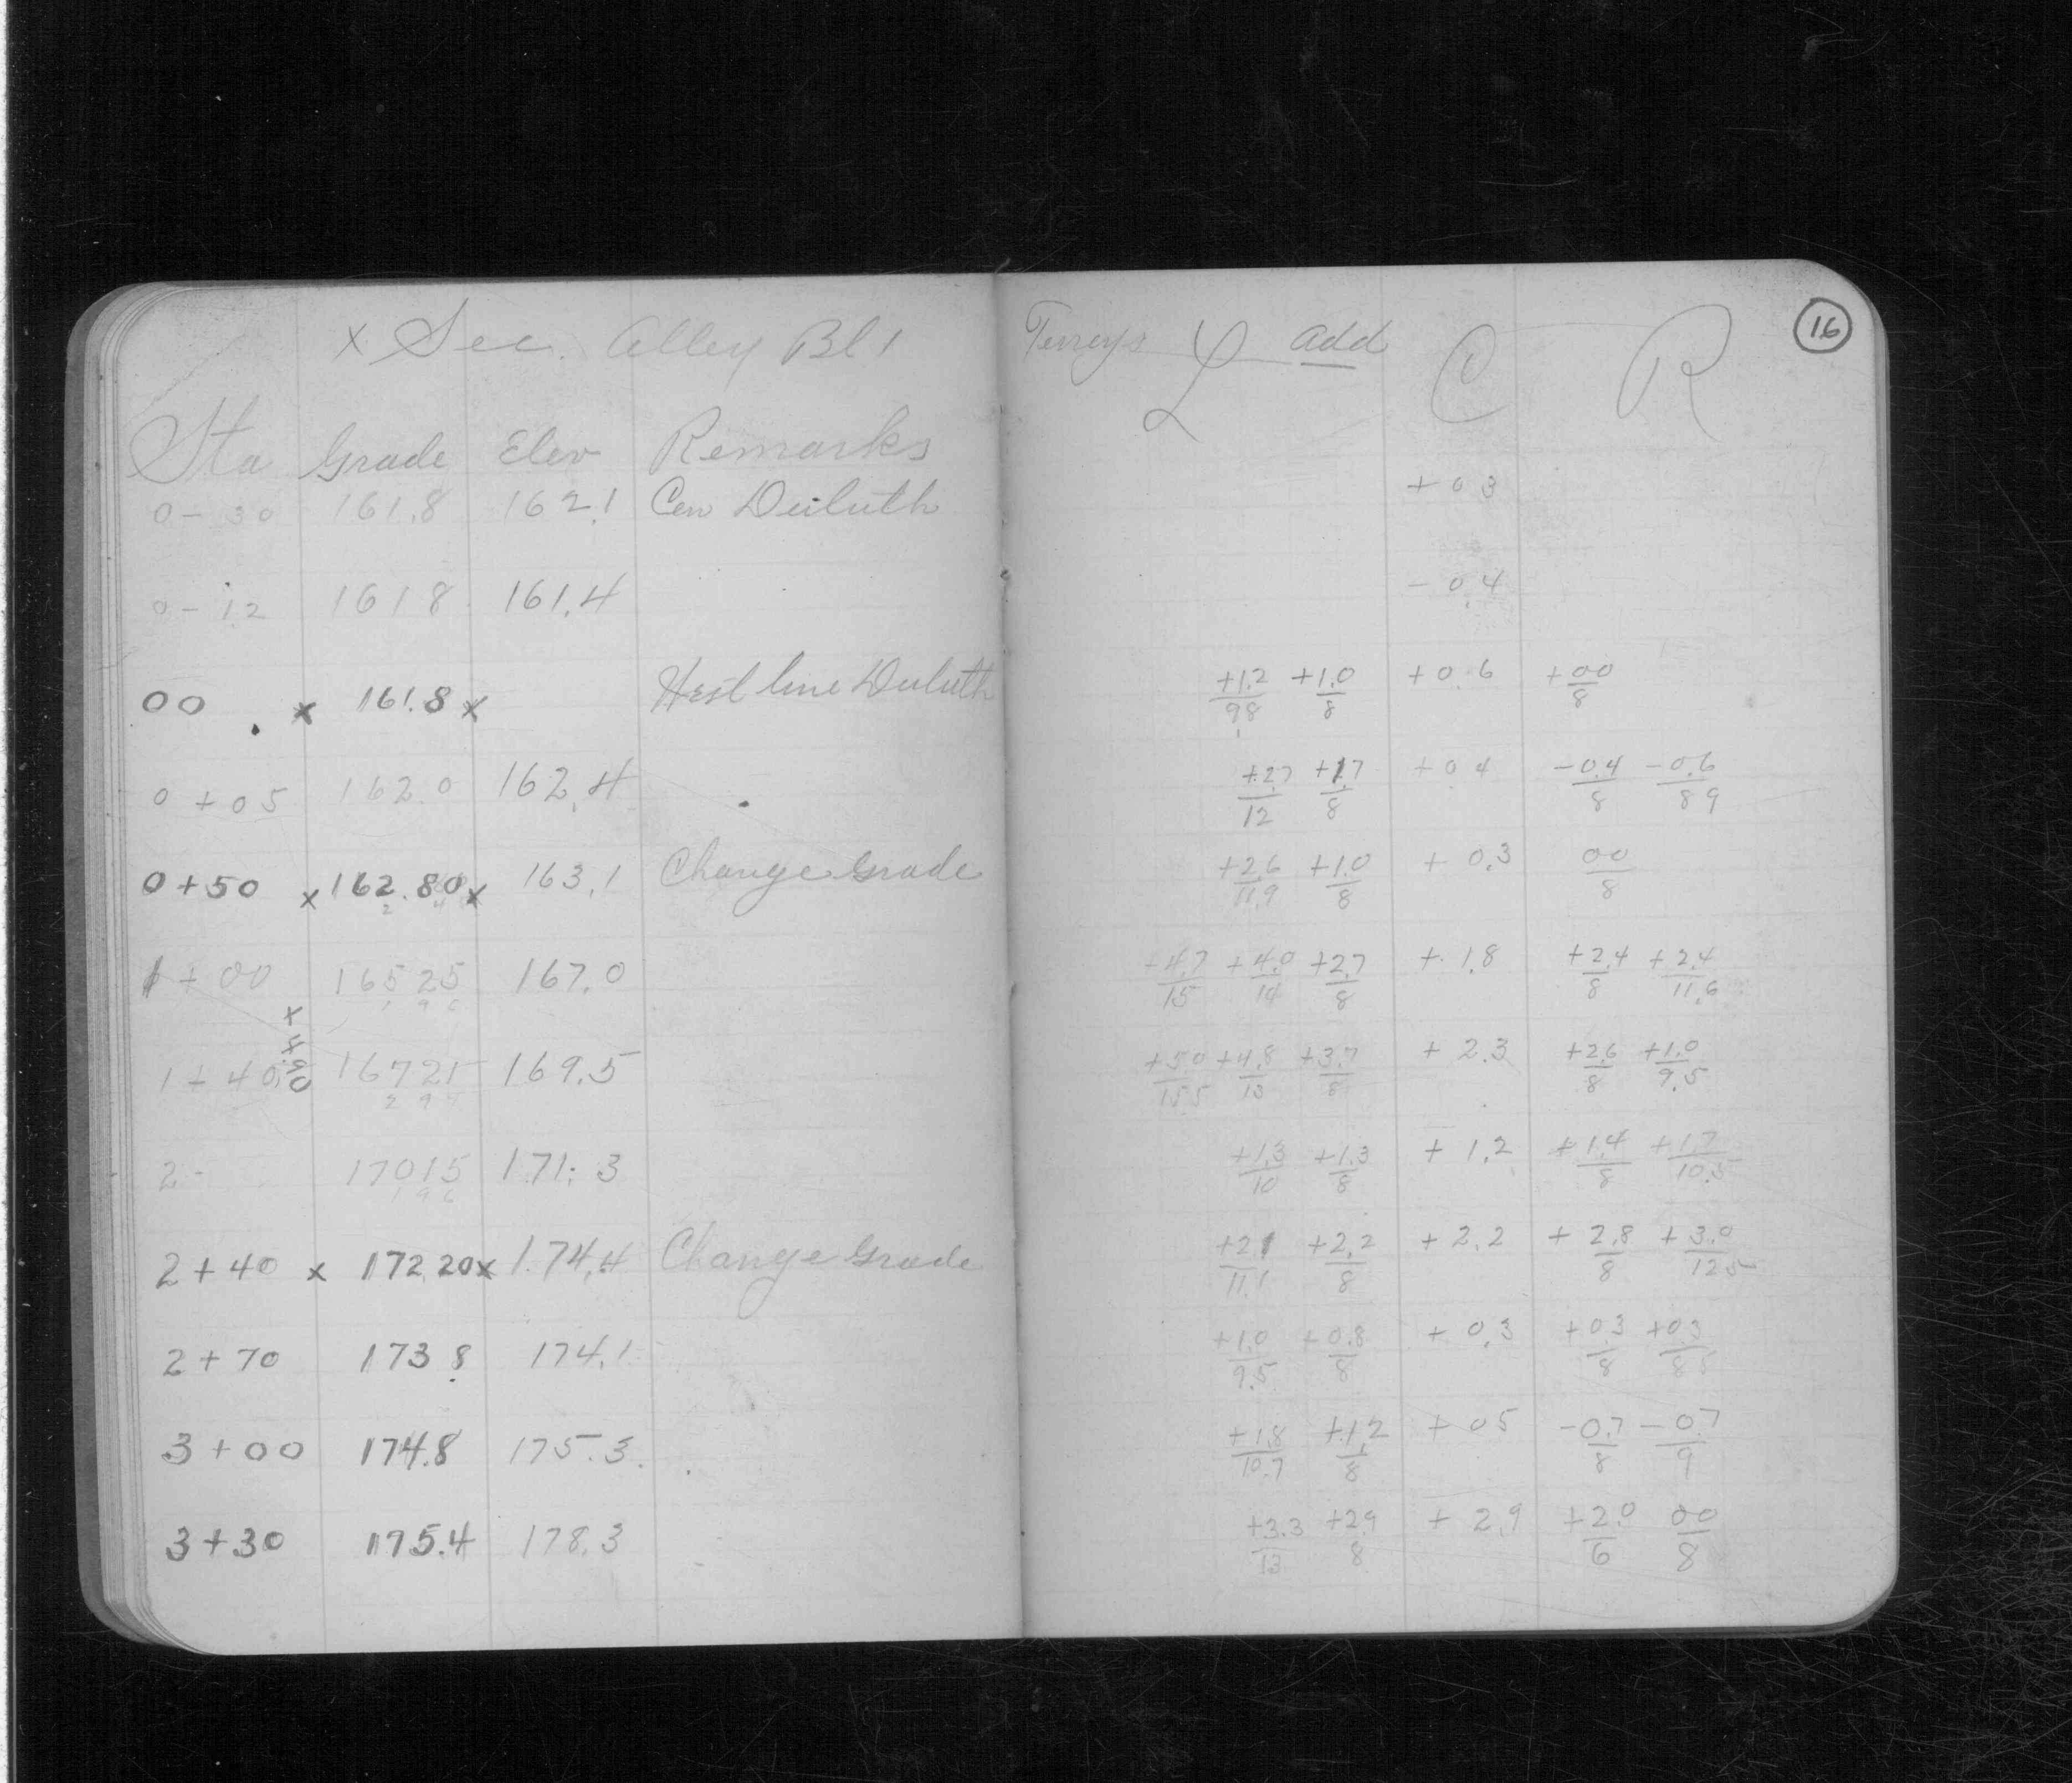 x Sec. Alley Bl 1 Terrys add 16
L C R
Sta Grade Elev Remarks
0 - 30 161.8 162.1 Cen Duluth + 0 3
0 - 12 161 8 161.4 - 0.4
00 x 161.8 x West line Duluth +1.2/98 +1.0/8 +0.6 +00/8
0 + 05 162.0 162.4 +2.7/12 +1.7/8 +0 4 -0.4/8 -0.6/8 9
0 + 50 x 162.80 x 163.1 Change Grade +2.6/11.9 +1.0/8 + 0.3 00/8
1 + 00 165 25 167.0 +4.7/15 +4.0/14 +2.7/8 + 1.8 +2.4/8 +2.4/11.6
1 + 40 167 25 169.5 +5 0/15 5 +4.8/13 +3.7/8 + 2.3 +2.6/8 +1.0/9.5
x 4.90
2 - 170 15 171.3 +1.3/10 +1.3/8 + 1.2 +1.4/8 +1.7/10.5
2 + 40 x 172 20 x 174.4 Change Grade +2 1/11.1 +2.2/8 + 2.2 + 2.8/8 + 3.0/12 5
2 + 70 173 8 174.1 +1.0/9.5 +0.8/8 + 0.3 +0.3/8 +0.3/8 5
3 + 00 174.8 175.3 +1.8/10.7 +1.2/8 + 0 5 -0.7/8 -0.7/9
3 + 30 175.4 178.3 +3.3/13 +2 9/8 + 2.9 +2.0/6 00/8